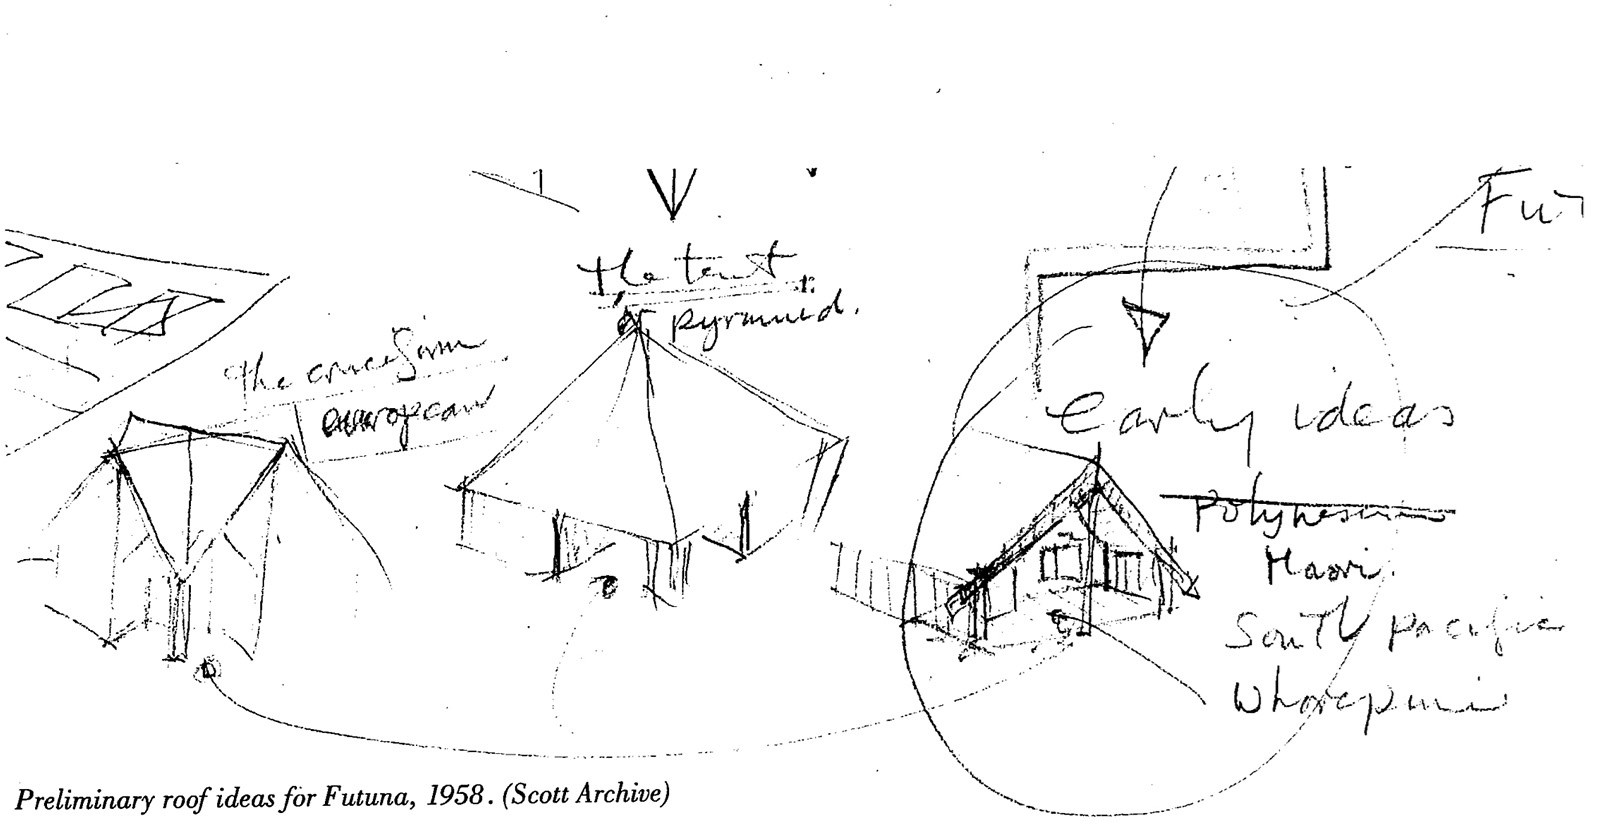 Fut
the tent
or pyramid.
The cruciform
european
early ideas
Polynesian
Maori.
South Pacific
Wharepuni
Preliminary roof ideas for Futuna, 1958. (Scott Archive)